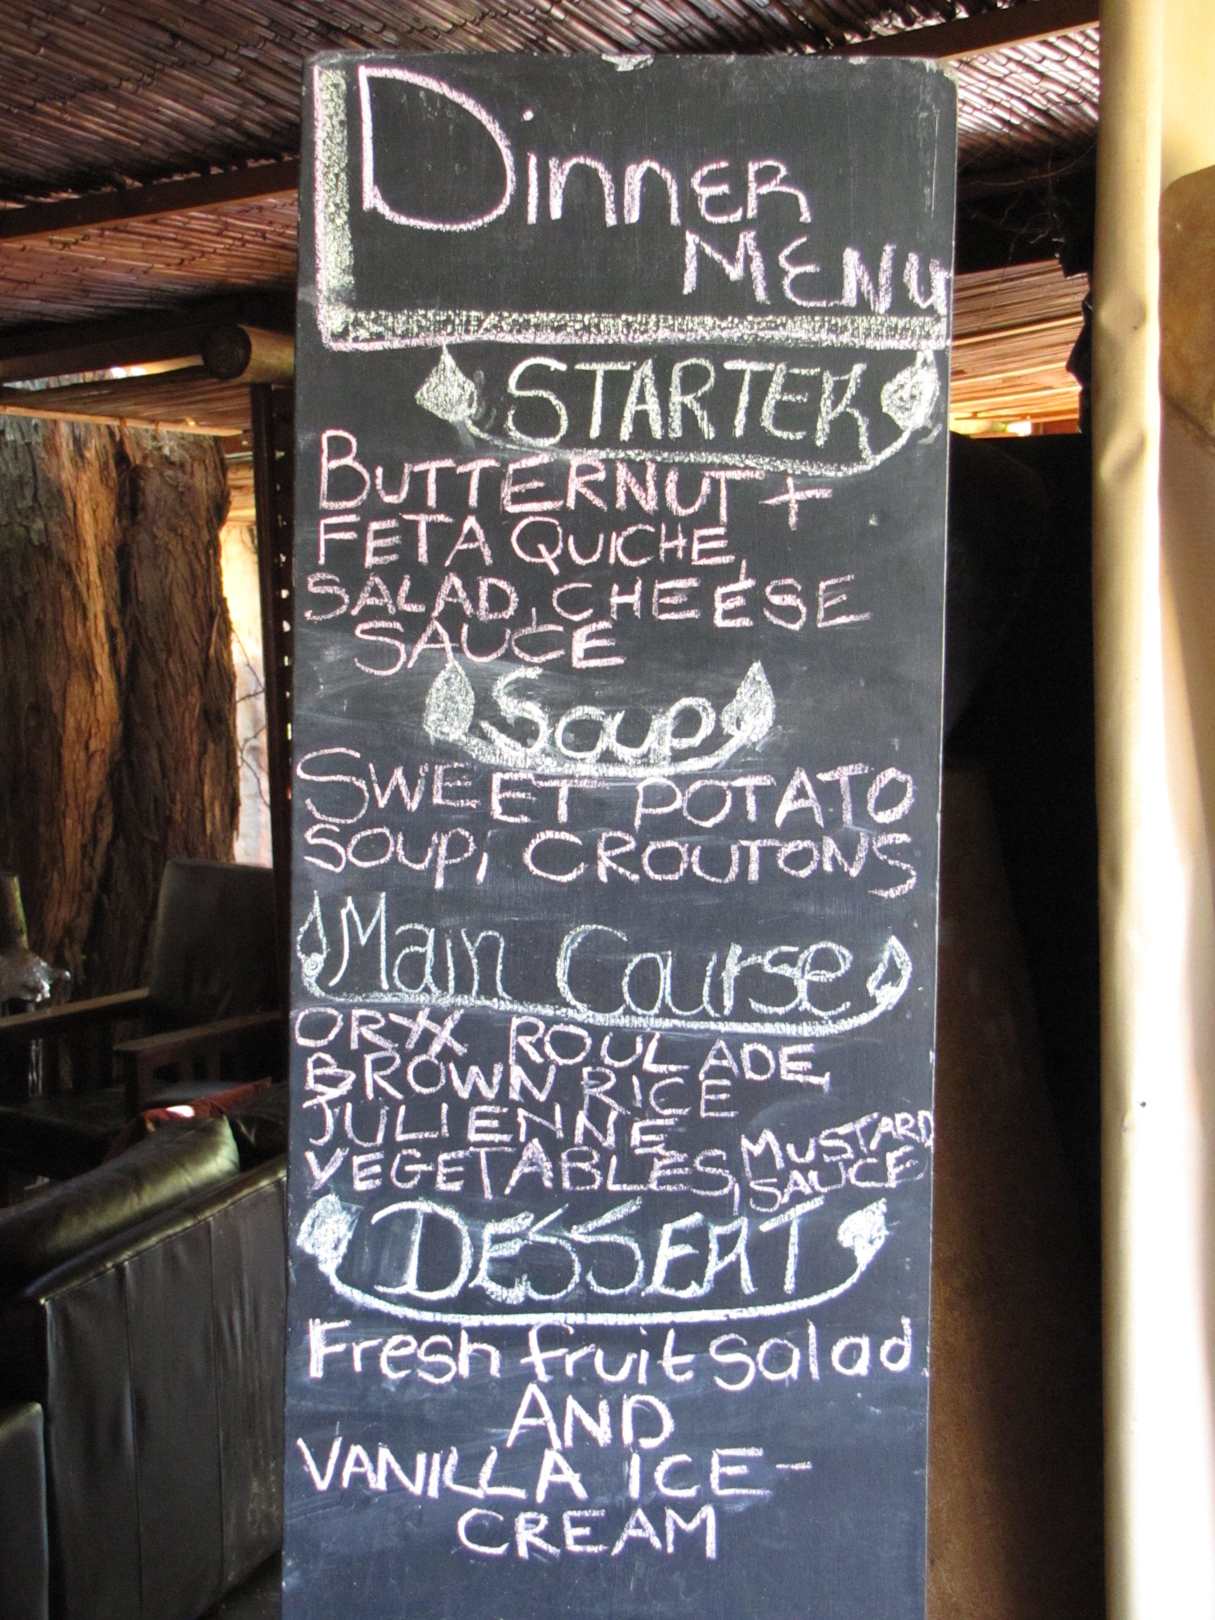 Dinner
MENU
STARTER
BUTTERNUT +
FETA QUICHE,
SALAD, CHEESE
SAUCE
Soup
SWEET POTATO
SOUP, CROUTONS
Main Course
ORYX ROULADE
BROWN RICE
JULIENNE
VEGETABLES, MUSTARD
SAUCE
DESSERT
Fresh fruit salad
AND
VANILLA ICE-
CREAM